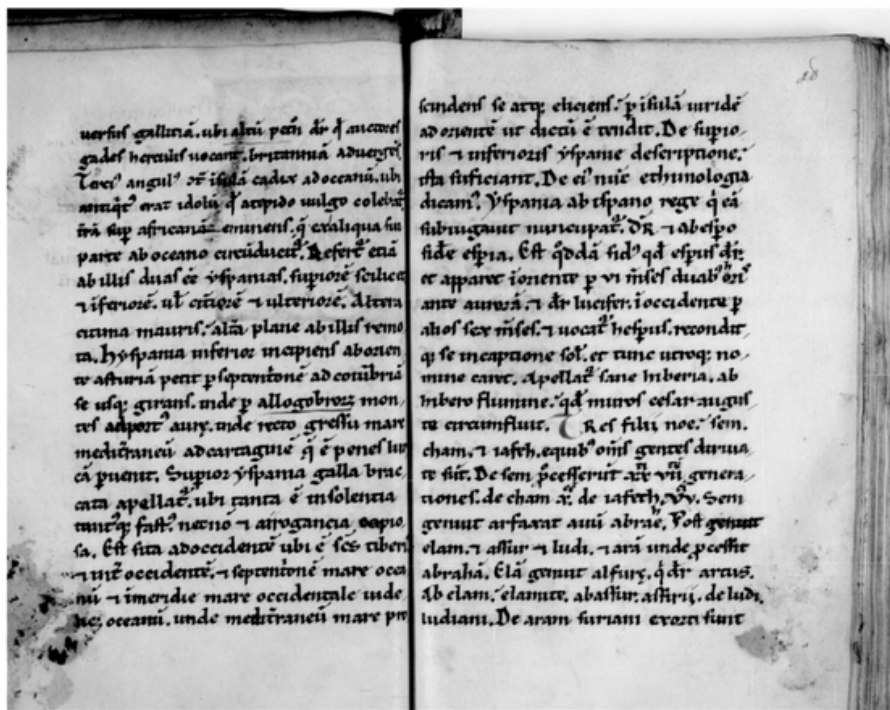 uersus gallitiā. ubi altū petrī dr̄ qd̄ auctores
gades herculis uocant. britanniā aduergēs.
Terciꝰ angulꝰ est isulā cadix ad oceanū. ubi
antiqͥtꝰ erat idolū qd̄ atepido uulgo colebat᷑
ultrā sup africanā eminens.
parte ab oceano circūducit᷑. Refert᷑ etiā
ab illis duas eē yspanias. supiorē scilicet
⁊ iferiorē. ul̄ citiorē ⁊ ulteriorē. Altera
citima mauris. alt̄a plane ab illis remo
ta. hyspania inferior incipiens ab orien
te asturiā petit p septent̄onē ad coiūbriā
se usqꝫ girans. inde p allogobroꝝ mon
tes ad portꝰ inde recto gressu mare
medit̄raneū ad cartaginē q̄ ē penes lur
cā puenit. Supior yspania galla brac
cata apellat᷑. ubi tanta ē insolentia
tantꝰqꝫ fastꝰ necnō ⁊ arrogancia copio
sa. Est sita ad occidentē ubi ē sc̄s tiberi
⁊ int̄ occidentē. ⁊ septent̄onē mare occea
nū ⁊ imeridie mare occidentale uide
oceanū. unde medit̄raneū mare pro
28
scindens se atqꝫ eliciens. p isulā uiridē
ad orientē ut dictū ē tendit. De supio-
ris ⁊ inferioris yspanie descriptione.
ista suficiant. De eiꝰ nūc ethimologia
dicamꝰ. Yspania ab ispano rege q̄ eā
subiugauit nuncupat᷑. dr̄ ⁊ ab espo
sidē espia. Est qd̄dā sidꝰ qd̄ espus dr̄.
et apparet i oriente p vi m̄ses duabꝰ horis
ante aurorā. ⁊ dr̄ lucifer. i occidente p
alios sex m̄ses. ⁊ uocat᷑ hespus. recondit
qꝫ se in captione sol. et tunc utroqꝫ no-
mine caret. Apellat᷑ sane hiberia. ab
hibero flumine. qd̄ muros cesar augus
te circumfluit. TRes filii noe. sem.
cham. ⁊ iafeth. e quibꝰ om̄s gentes diriua
te sūt. De sem p̄cesserūt genera
tiones. de cham de iafeth. xv. Sem
genuit arfaxat auū abrahe. Post genuit
elam. ⁊ assur ⁊ ludi. ⁊ arā unde p̄cessit
abrahā. Elā genuit q̄ dr̄ artus.
Ab elam. elamite. ab assur. assirii. de ludi.
ludiani. De aram suriani exorti sunt